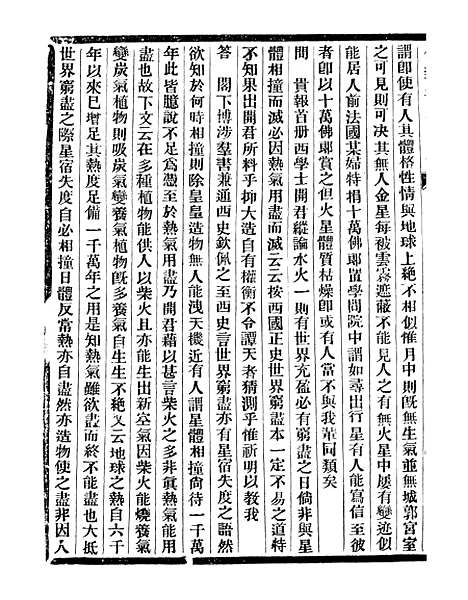 謂即使有人其體格性情與地球上絶不相似惟月中則旣無生氣並無城郭宮室
之可見則可决其無人金星每被雲霧遮蔽不能見人之有無火星中屢有變迹似
能居人前法國某婦特捐十萬佛郎置學問院中謂如尋出行星有人能寫信至彼
者即以十萬佛郎賞之但火星體質枯燥即或有人當不與我輩同類矣
問　貴報首册西學士開君縱論水火一則有世界充盈必有窮盡之日倘非與星
體相撞而滅必因熱氣用盡而滅云云按西國正史世界窮盡本一定不易之道特
不知果出開君所料乎抑大造自有權衡不令譚天者猜測乎惟祈明以教我
答　閣下博涉羣書兼通西史欽佩之至西史言世界窮盡亦有星宿失度之語然
欲知於何時相撞則除皇皇造物無人能洩天機近有人謂星體相撞尙待一千萬
年此皆臆說不足爲憑至於熱氣用盡乃開君藉以甚言柴火之多非眞熱氣能用
盡也故下文云在多種植物能供人以柴火且亦能生出新空氣因柴火能燒養氣
變炭氣植物則吸炭氣變養氣植物旣多養氣自生生不絶又云地球之熱自六千
年以來已增足其熱度足備一千萬年之用是知熱氣雖欲盡而終不能盡也大抵
世界窮盡之際星宿失度自必相撞日體反當熱亦自盡然亦造物使之盡非因人